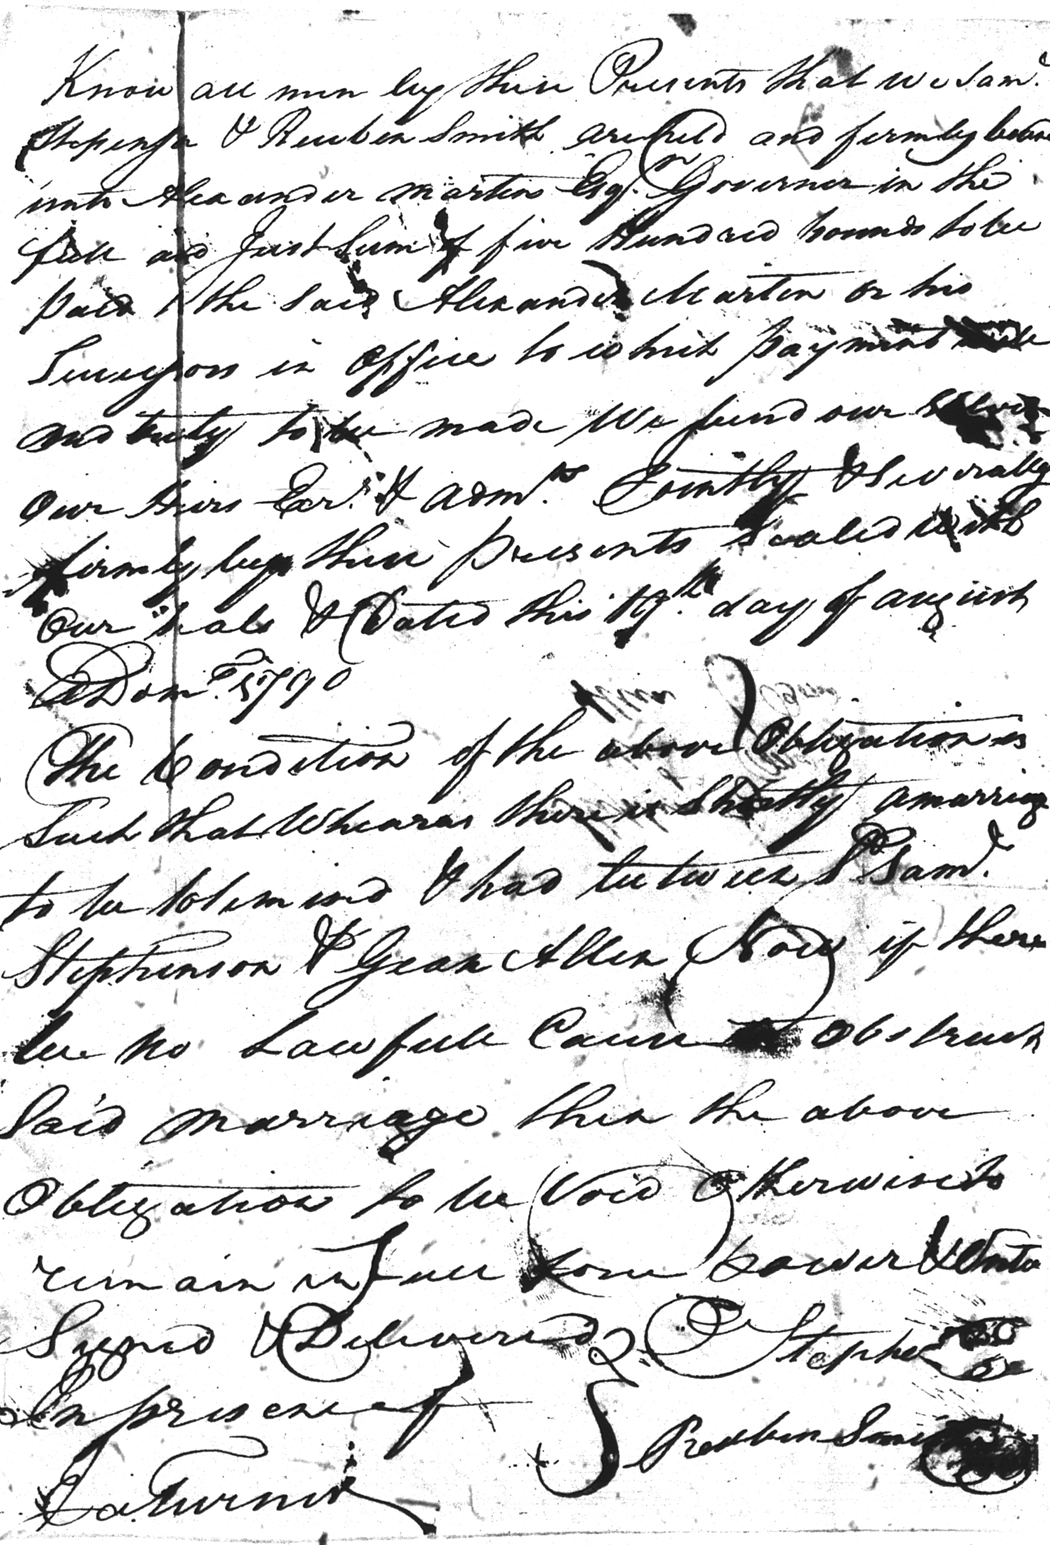 Know all men by these Presents that we Sam.l
Stepenson & Reuben Smith are held and firmly bound
unto Alexander Martin Esq.r Governer in the
full and Just Sum of five Hundred pounds to be
paid the said Alexander Martin or his
Sucessors in office to which payment
and truly to be made We bind our selves
our Heirs Exr.s & adm.rs Jointly & Severally
firmly by these presents sealed with
our seals & Dated this 19th day of august
A Dom.o 1790
The Condition of the above Obligation is
Such that Whearas there is Shortly a marriage
to be Solemnised & had between s.d Sam.l
Stephenson & Gean Allen Now if there
be no Lawfull Cause to obstruct
Said marriage then the above
Obligation to be Void Otherwise to
remain in full force power &
Signed & Delivered S Stephenson
In presence of
Reuben Smith